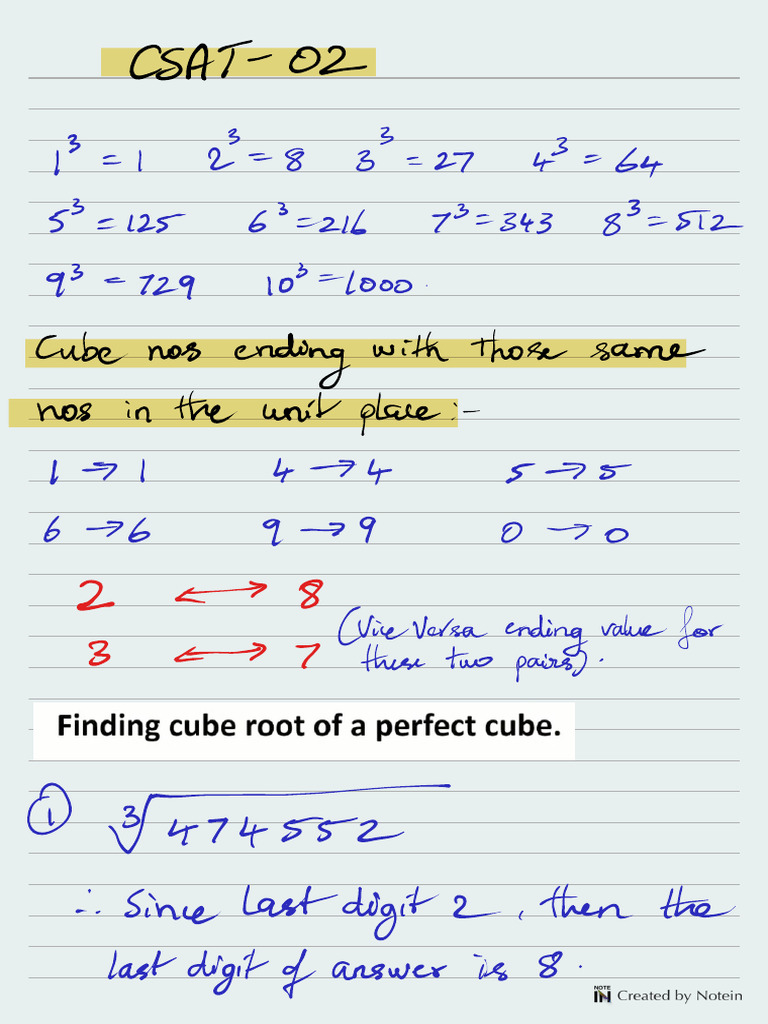 CSAT-02
1³ = 1 2³ = 8 3³ = 27 4³ = 64
5³ = 125 6³ = 216 7³ = 343 8³ = 512
9³ = 729 10³ = 1000.
Cube nos ending with those same
nos in the unit place :-
1 → 1 4 → 4 5 → 5
6 → 6 9 → 9 0 → 0
2 ↔ 8
(Vice Versa ending value for
3 ↔ 7
these two pairs).
Finding cube root of a perfect cube.
① ∛474552
∴ Since last digit 2, then the
last digit of answer is 8.
NOTE IN Created by Notein